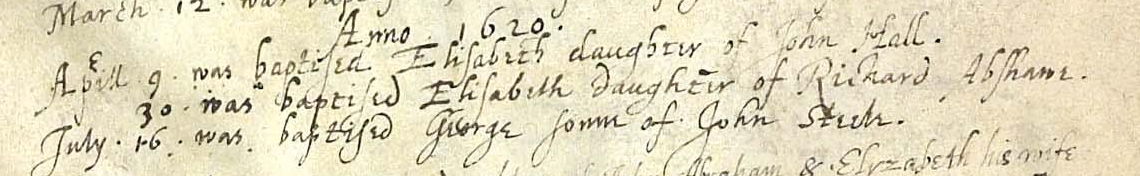 March . 12 . was
Anno . 1620 .
Aprill 9 . was baptised Elisabeth daughter of John Hall .
30 . was baptised Elisabeth daughter of Richard Abshawe .
July . 16 . was . baptised George sonne of . John Steele .
Abraham & Elyzabeth his wife